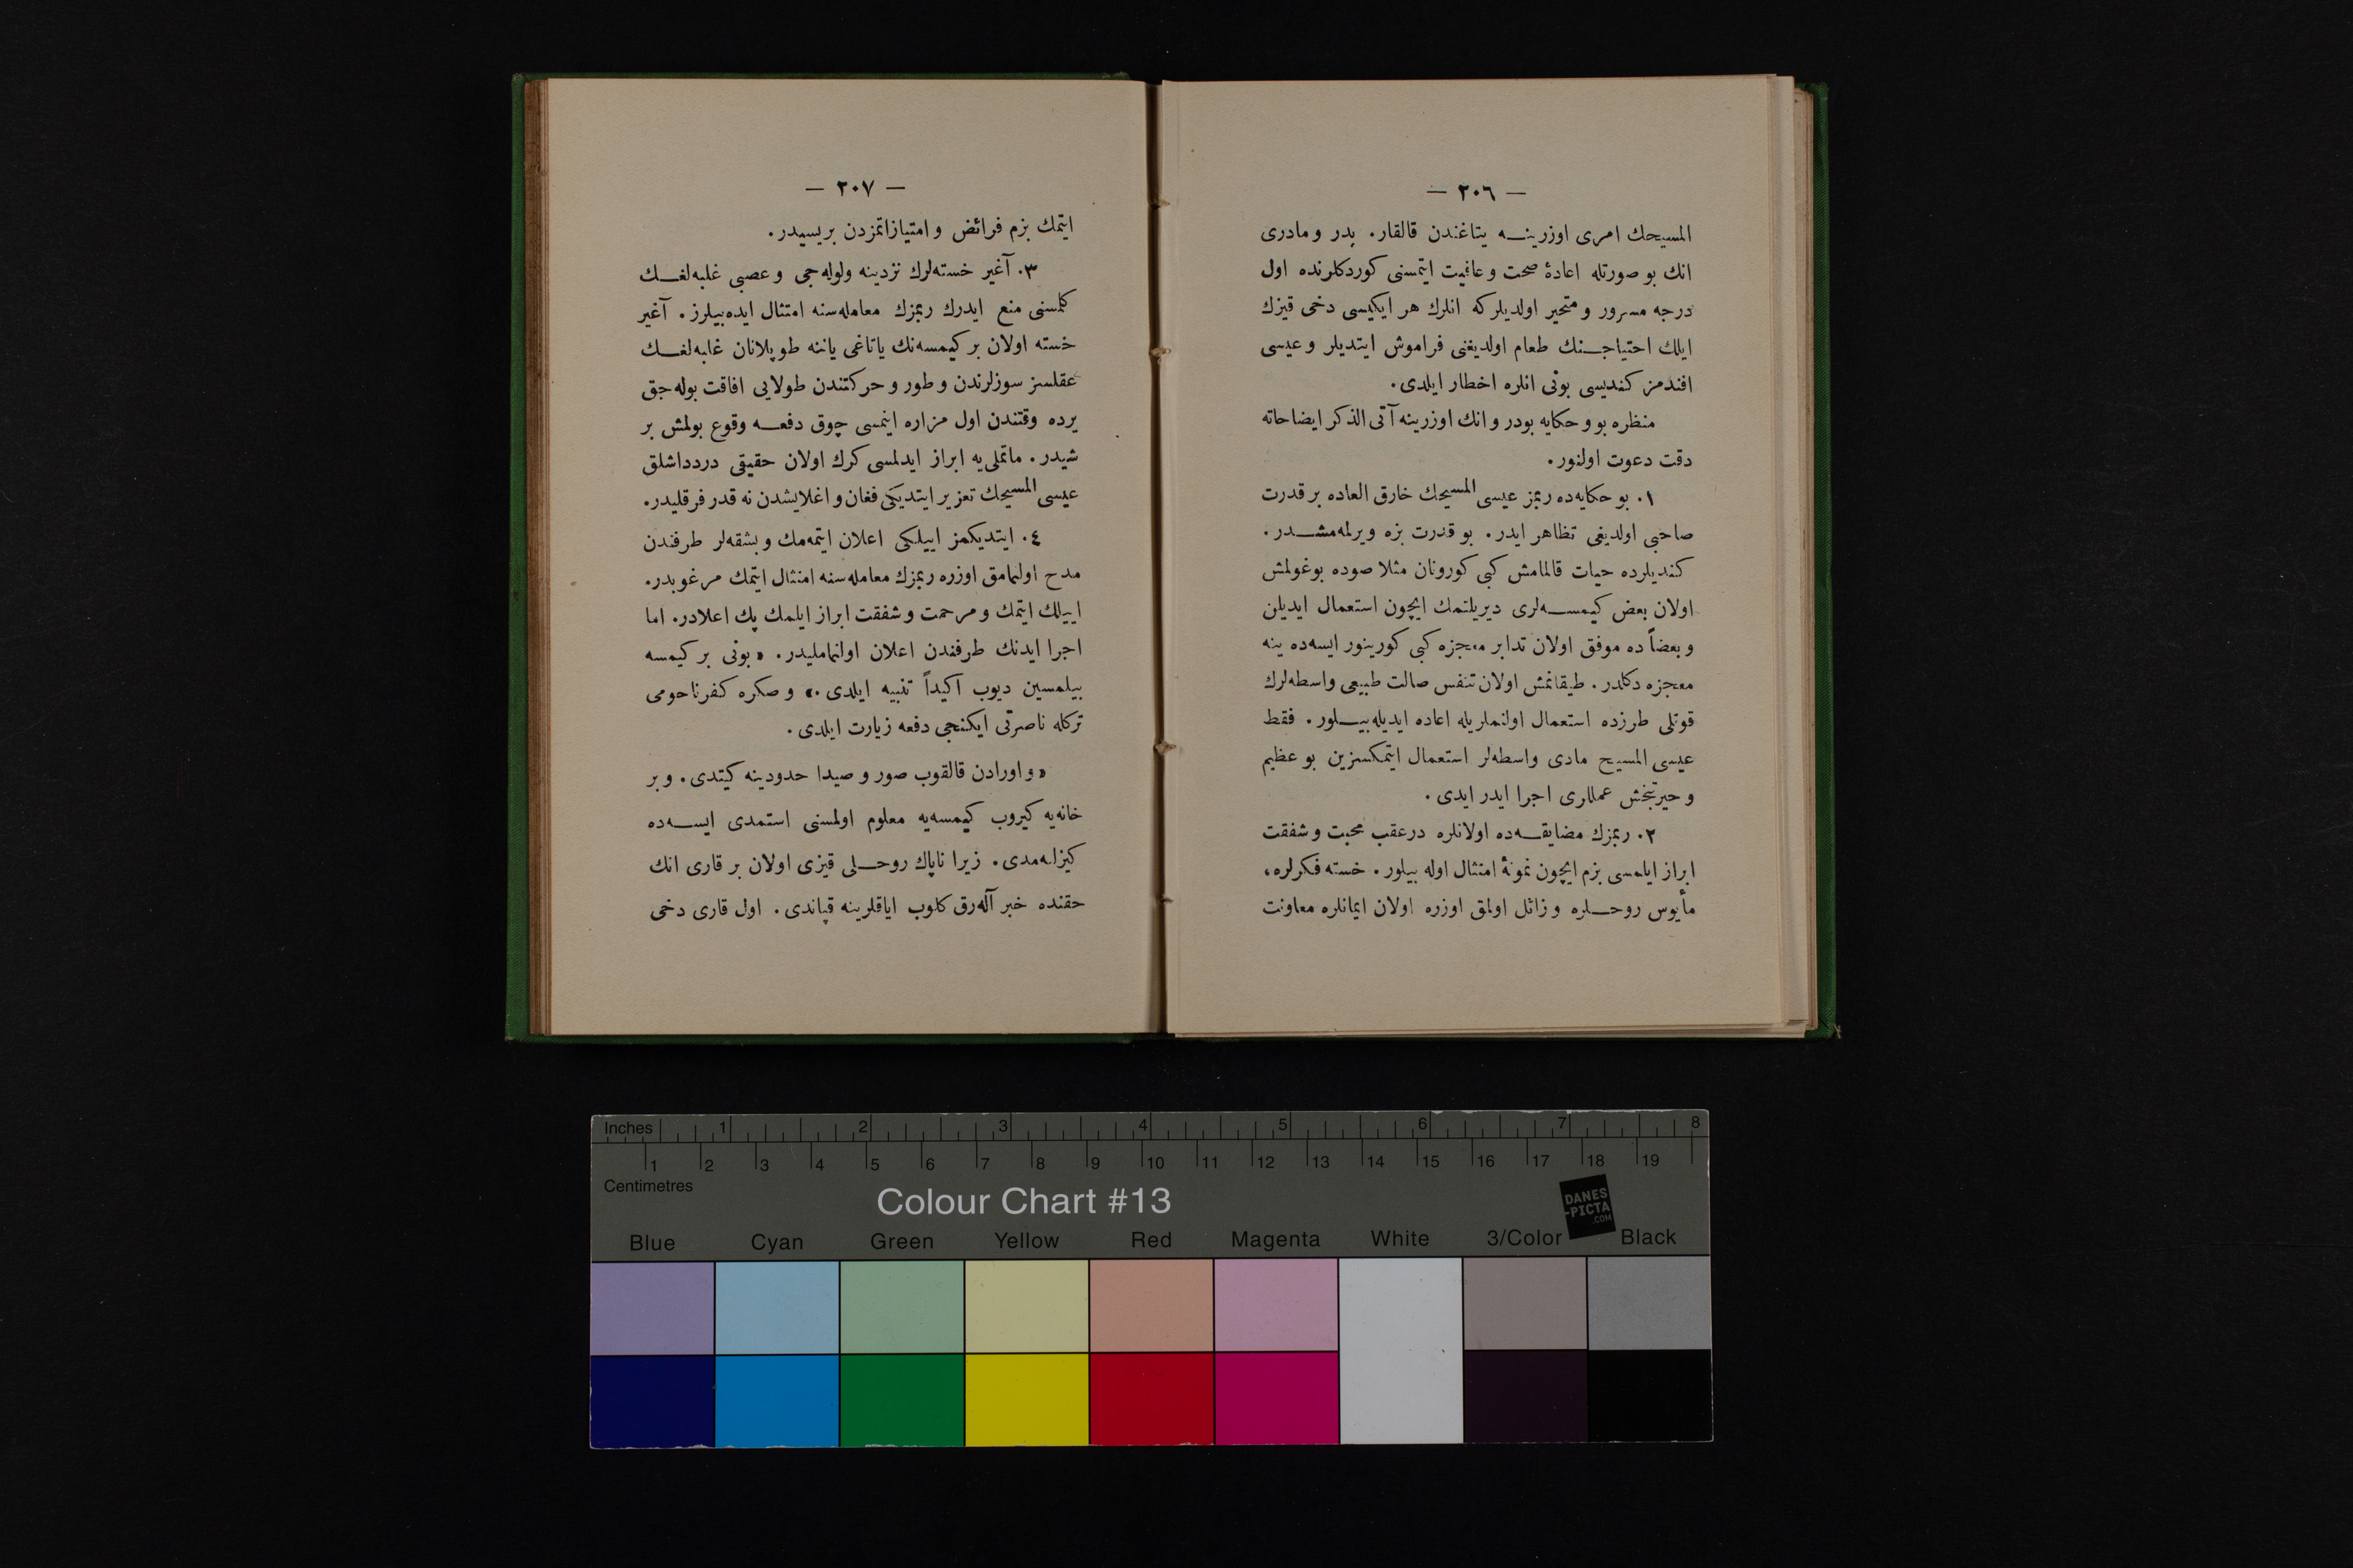 — ٢٠٦ —
المسيحك امری اوزرينـــه يتاغندن قالقار. پدر و مادری
انك بو صورتله اعادۀ صحت و عافيت ايتمسنی كوردكلرنده اول
درجه مسرور و متحير اولديلركه انلرك هر ايكيسی دخی قيزك
ايلك احتياجـــنك طعام اولديغنی فراموش ايتديلر و عيسی
افندمز كنديسی بونی انلره اخطار ايلدی.
منظره بو و حكايه بودر و انك اوزرينه آتی الذكر ايضاحاته
دقت دعوت اولنور.
١. بو حكايه‌ده ربمز عيسی المسيحك خارق العاده بر قدرت
صاحبی اولديغی تظاهر ايدر. بو قدرت بزه ويرلمه‌مشـــدر.
كنديلرده حيات قالمامش كبی كورونان مثلا صوده بوغولمش
اولان بعض كيمســـه‌لری ديريلتمك ايچون استعمال ايديلن
و بعضاً ده موفق اولان تدابر معجزه كبی كورينور ايسه‌ده ينه
معجزه دكلدر. طيقانمش اولان تنفس صالت طبيعی واسطه‌لرك
قوتلی طرزده استعمال اولنملريله اعاده ايديله‌بيـــلور. فقط
عيسی المسيح مادی واسطه‌لر استعمال ايتمكسزين بو عظيم
و حيرتبخش عمللری اجرا ايدر ايدی.
٢. ربمزك مضايقـــه‌ده اولانلره درعقب محبت و شفقت
ابراز ايلمسی بزم ايچون نمونۀ امتثال اوله بيلور. خسته فكرلره،
مأيوس روحـــلره و زائل اولمق اوزره اولان ايمانلره معاونت
— ٢٠٧ —
ايتمك بزم فرائض و امتيازاتمزدن بريسيدر.
٣. آغير خسته‌لرك نزدينه ولوله‌جی و عصبی غلبه‌لغـــك
كلمسنی منع ايدرك ربمزك معامله‌سنه امتثال ايده‌بيلرز. آغير
خسته اولان بر كيمسه‌نك ياتاغی ياننه طوپلانان غلبه‌لغـــك
عقلسز سوزلرندن و طور و حركتندن طولايی افاقت بوله‌جق
يرده وقتندن اول مزاره اينمسی چوق دفعـــه وقوع بولمش بر
شيدر. ماتملی‌يه ابراز ايدلمسی كرك اولان حقيقی دردداشلق
عيسی المسيحك تعزير ايتديكی فغان و اغلايشدن نه قدر فرقليدر.
٤. ايتديكمز اييلكی اعلان ايتمه‌مك و بشقه‌لر طرفندن
مدح اولنمامق اوزره ربمزك معامله‌سنه امتثال ايتمك مرغوبدر.
اييلك ايتمك و مرحمت و شفقت ابراز ايلمك پك اعلادر. اما
اجرا ايدنك طرفندن اعلان اولنمامليدر. «بونی بر كيمسه
بيلمسين ديوب اكيداً تنبيه ايلدی.» و صكره كفرناحومی
تركله ناصرتی ايكنجی دفعه زيارت ايلدی.
«و اورادن قالقوب صور و صيدا حدودينه كيتدی. و بر
خانه‌يه كيروب كيمسه‌يه معلوم اولمسنی استمدی ايســـه‌ده
كيزلنه‌مدی. زيرا ناپاك روحـــلی قيزی اولان بر قاری انك
حقنده خبر آله‌رق كلوب اياقلرينه قپاندی. اول قاری دخی
Inches 1 2 3 4 5 6 7 8
1 2 3 4 5 6 7 8 9 10 11 12 13 14 15 16 17 18 19
Centimetres
Colour Chart #13
DANES
-PICTA
.COM
Blue Cyan Green Yellow Red Magenta White 3/Color Black